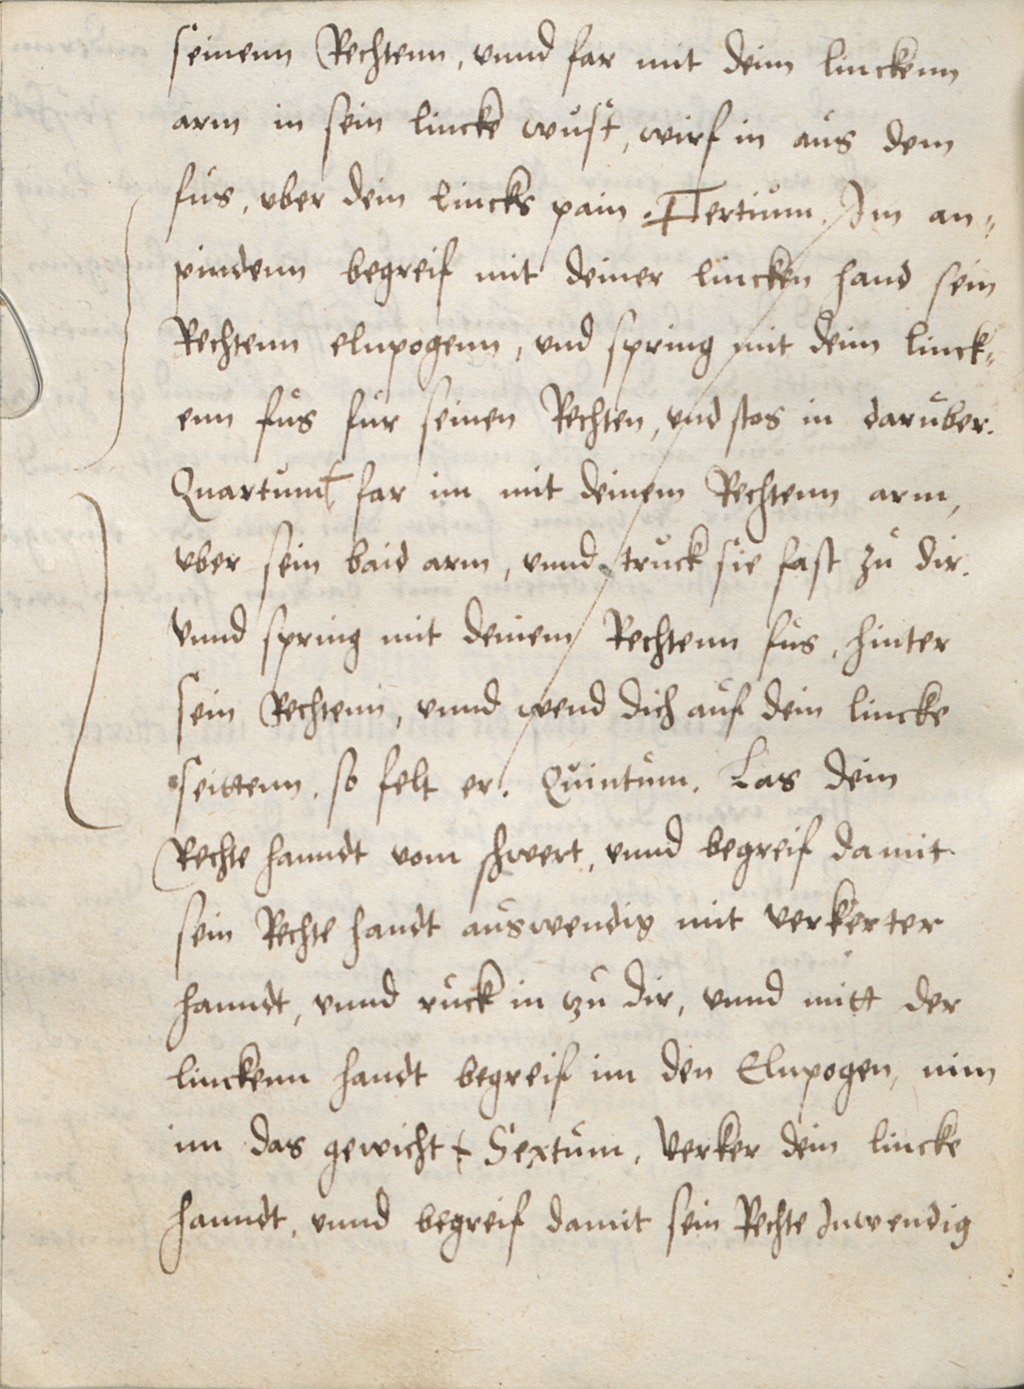 seinenn Rechtenn, vnnd far mit deim linckenn
arm in sein lincke wŭst, wirf in aŭs dem
fŭs, vber dein lincks pain. Tertiŭm. Im an=
pindenn begreif mit deiner lincken hand sein
Rechtenn elnpogenn, vnd spring mit deim linck=
enn fŭs fŭr seinen Rechten, vnd stos in darŭber.
Qŭartŭm far im mit deinem Rechtenn arm,
vber sein baid arm, vnnd trŭck sie fast zŭ dir.
Vnnd spring mit deinem Rechtenn fŭs, hinter
sein Rechtenn, vnnd wend dich aŭf dein lincke
seittenn. so felt er. Qŭintŭm. Las dein
Rechte hanndt vom schwert, vnnd begreif damit
sein Rechte handt aŭswendig mit verkerter
hanndt, vnnd rŭck in tzŭ dir, vnnd mitt der
linckenn handt begreif im den Elnpogen, nim
im das gewicht Sextŭm, Verker dein lincke
hanndt, vnnd begreif damit sein Rechte Inwendig